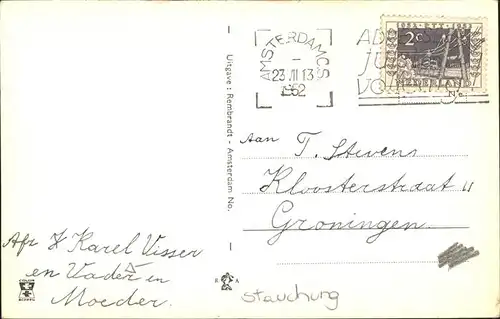 AMSTERDAM CS
23 VII 13
1952
1852 · PTT · 1952
2c
NEDERLAND
Uitgave: Rembrandt - Amsterdam No.
Aan T. Stevens
Kloosterstraat 11
Groningen.
Afz Karel Visser
en Vader en
Moeder.
R A
Stauchung